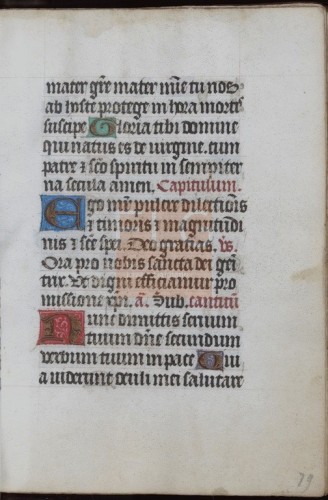 mater gr̄e mater mīe tu nob̄
ab hoste protege in hora mortis
suscipe Gloria tibi domine
qui natus es de virgine. cum
patre ⁊ sc̄o spiritu in sempiter
na secula amen. Capitulum.
Ego mr̄ pulcre dilectionis
⁊ timoris ⁊ magnitudi
nis ⁊ sc̄e spei. Deo gracias. vs.
Ora pro nobis sancta dei geni
trix. Ut digni efficiamur pro
missione xp̄i. a. Sub. canticū
Nunc dimittis servum
tuum dn̄e secundum
verbum tuum in pace Qui
a viderunt oculi mei salutare
79